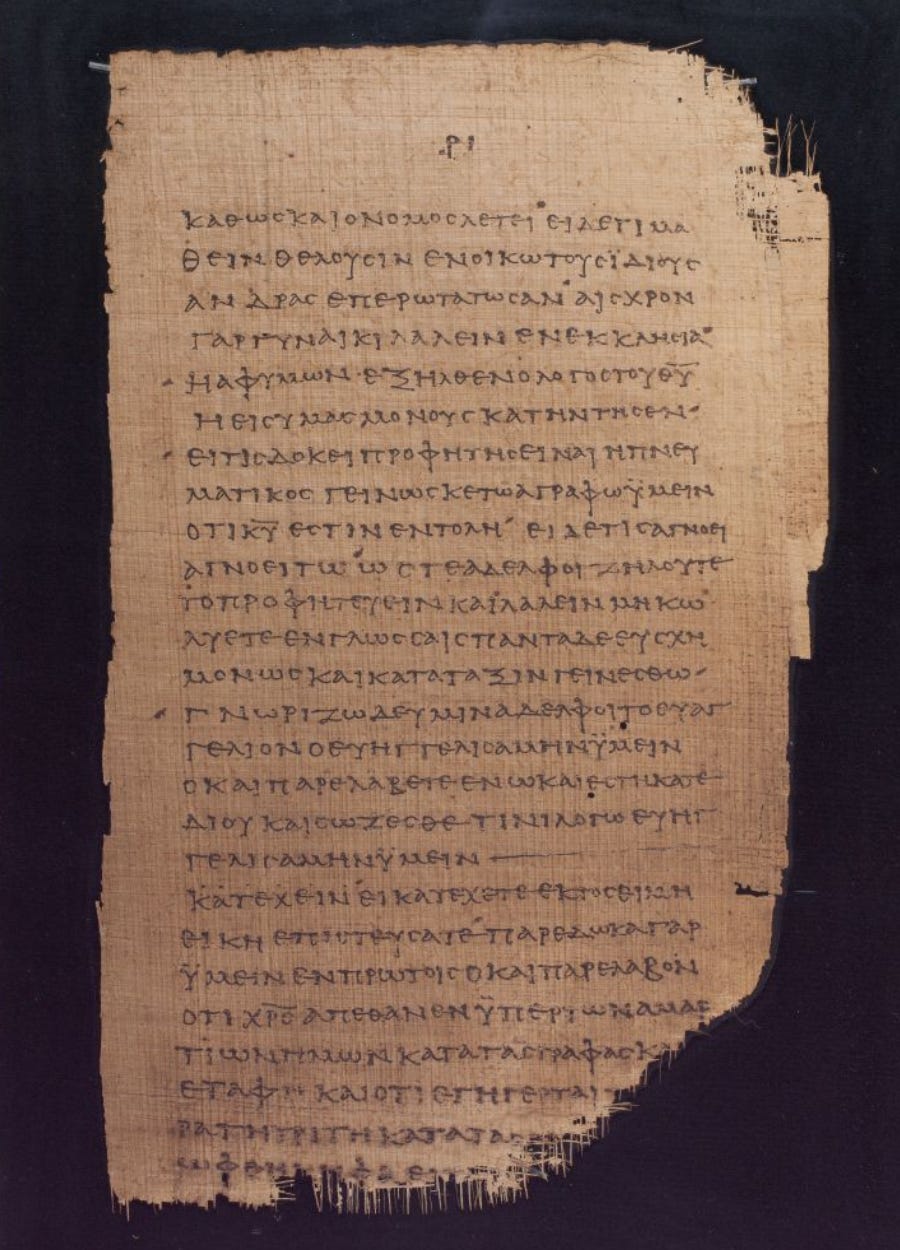 ΡΙ
ΚΑΘΩϹΚΑΙΟΝΟΜΟϹΛΕΓΕΙ ΕΙΔΕΤΙΜΑ
ΘΕΙΝΘΕΛΟΥϹΙΝ ΕΝΟΙΚΩΤΟΥϹΪΔΙΟΥϹ
ΑΝΔΡΑϹ ΕΠΕΡΩΤΑΤΩϹΑΝ ΑΙϹΧΡΟΝ
ΓΑΡΓΥΝΑΙΚΙΛΑΛΕΙΝΕΝΕΚΚΛΗϹΙΑ
ΗΑΦΥΜΩΝ ΕΞΗΛΘΕΝΟΛΟΓΟϹΤΟΥΘ̅Υ̅
ΗΕΙϹΥΜΑϹΜΟΝΟΥϹΚΑΤΗΝΤΗϹΕΝ
ΕΙΤΙϹΔΟΚΕΙΠΡΟΦΗΤΗϹΕΙΝΑΙΗΠΝΕΥ
ΜΑΤΙΚΟϹ ΓΕΙΝΩϹΚΕΤΩΑΓΡΑΦΩΫΜΕΙΝ
ΟΤΙΚ̅Υ̅ ΕϹΤΙΝΕΝΤΟΛΗ ΕΙΔΕΤΙϹΑΓΝΟΕΙ
ΑΓΝΟΕΙΤΩ ΩϹΤΕΑΔΕΛΦΟΙ ΖΗΛΟΥΤΕ
ΤΟΠΡΟΦΗΤΕΥΕΙΝΚΑΙΛΑΛΕΙΝΜΗΚΩ
ΛΥΕΤΕΕΝΓΛΩϹϹΑΙϹΠΑΝΤΑΔΕΕΥϹΧΗ
ΜΟΝΩϹΚΑΙΚΑΤΑΤΑΞΙΝΓΕΙΝΕϹΘΩ
ΓΝΩΡΙΖΩΔΕΥΜΙΝΑΔΕΛΦΟΙΤΟΕΥΑΓ
ΓΕΛΙΟΝΟΕΥΗΓΓΕΛΙϹΑΜΗΝΫΜΕΙΝ
ΟΚΑΙΠΑΡΕΛΑΒΕΤΕΕΝΩΚΑΙΕϹΤΗΚΑΤΕ
ΔΙΟΥΚΑΙϹΩΖΕϹΘΕ ΤΙΝΙΛΟΓΩΕΥΗΓ
ΓΕΛΙϹΑΜΗΝΫΜΕΙΝ
ΚΑΤΕΧΕΙΝ ΕΙΚΑΤΕΧΕΤΕΕΚΤΟϹΕΙΜΗ
ΕΙΚΗ ΕΠΙϹΤΕΥϹΑΤΕ ΠΑΡΕΔΩΚΑΓΑΡ
ΫΜΕΙΝΕΝΠΡΩΤΟΙϹΟΚΑΙΠΑΡΕΛΑΒΟΝ
ΟΤΙΧ̅Ρ̅Ϲ̅ΑΠΕΘΑΝΕΝΫΠΕΡΤΩΝΑΜΑΡ
ΤΙΩΝΗΜΩΝΚΑΤΑΤΑϹΓΡΑΦΑϹΚΑ
ΕΤΑΦΗ ΚΑΙΟΤΙΕΓΗΓΕΡΤΑΙΤ
ΡΑΤΗΤΡΙΤΗΚΑΤΑΤΑϹ